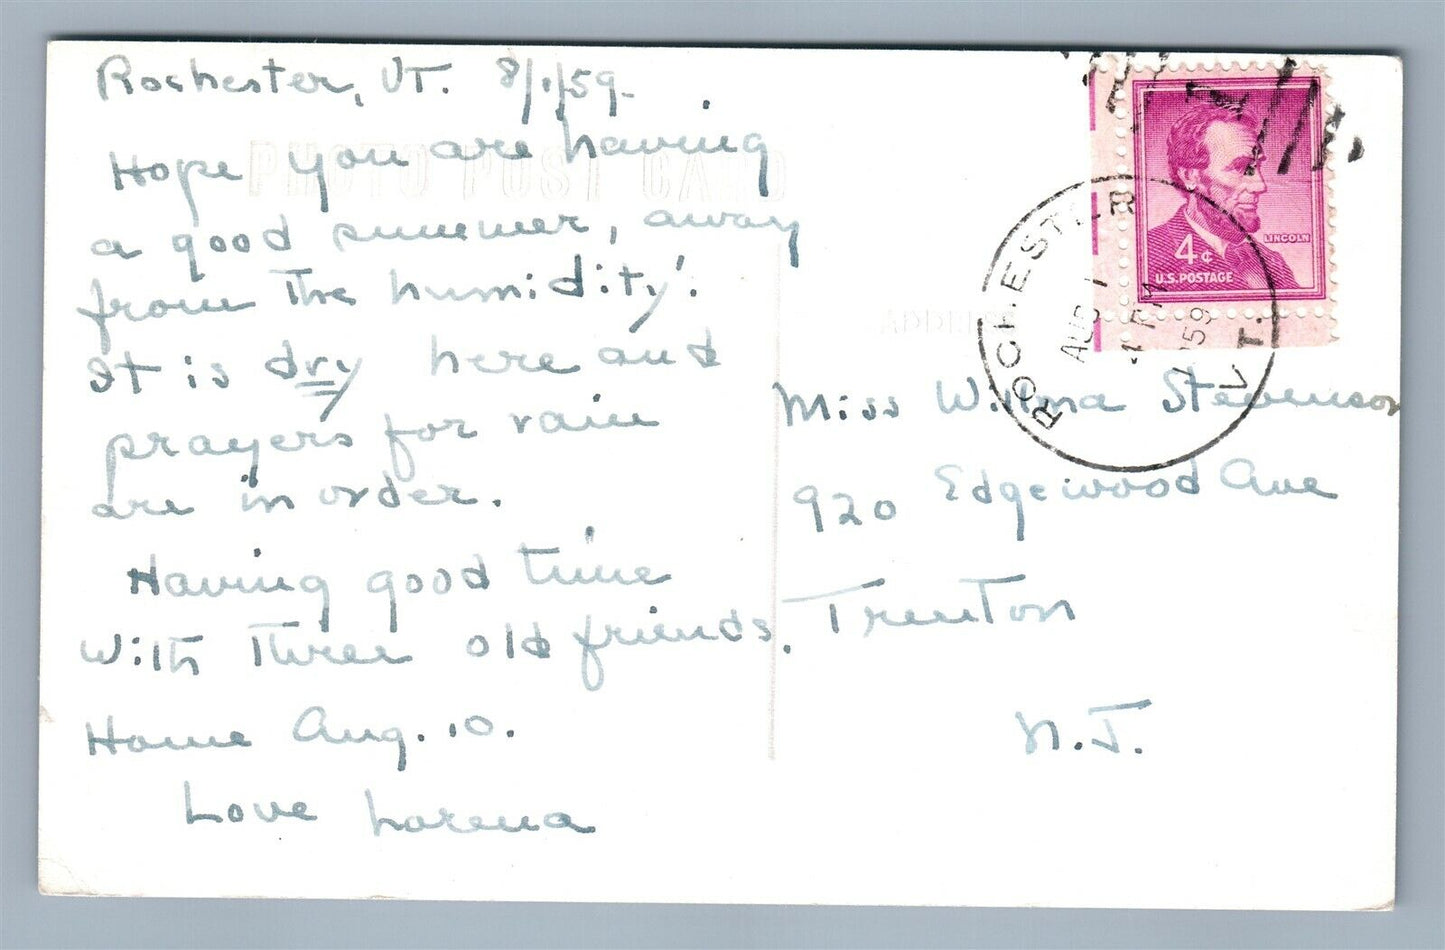 Rochester, VT. 8/1/59.
Hope you are having
a good summer, away
from the humidity!
It is dry here and
prayers for rain
are in order.
Having good time
with three old friends.
Home Aug. 10.
Love Lorena
PHOTO POST CARD
ADDRESS
LINCOLN
4¢
U.S. POSTAGE
ROCHESTER
AUG 1
4 PM
1959
VT.
Miss Wilma Stevenson
920 Edgewood Ave
Trenton
N.J.